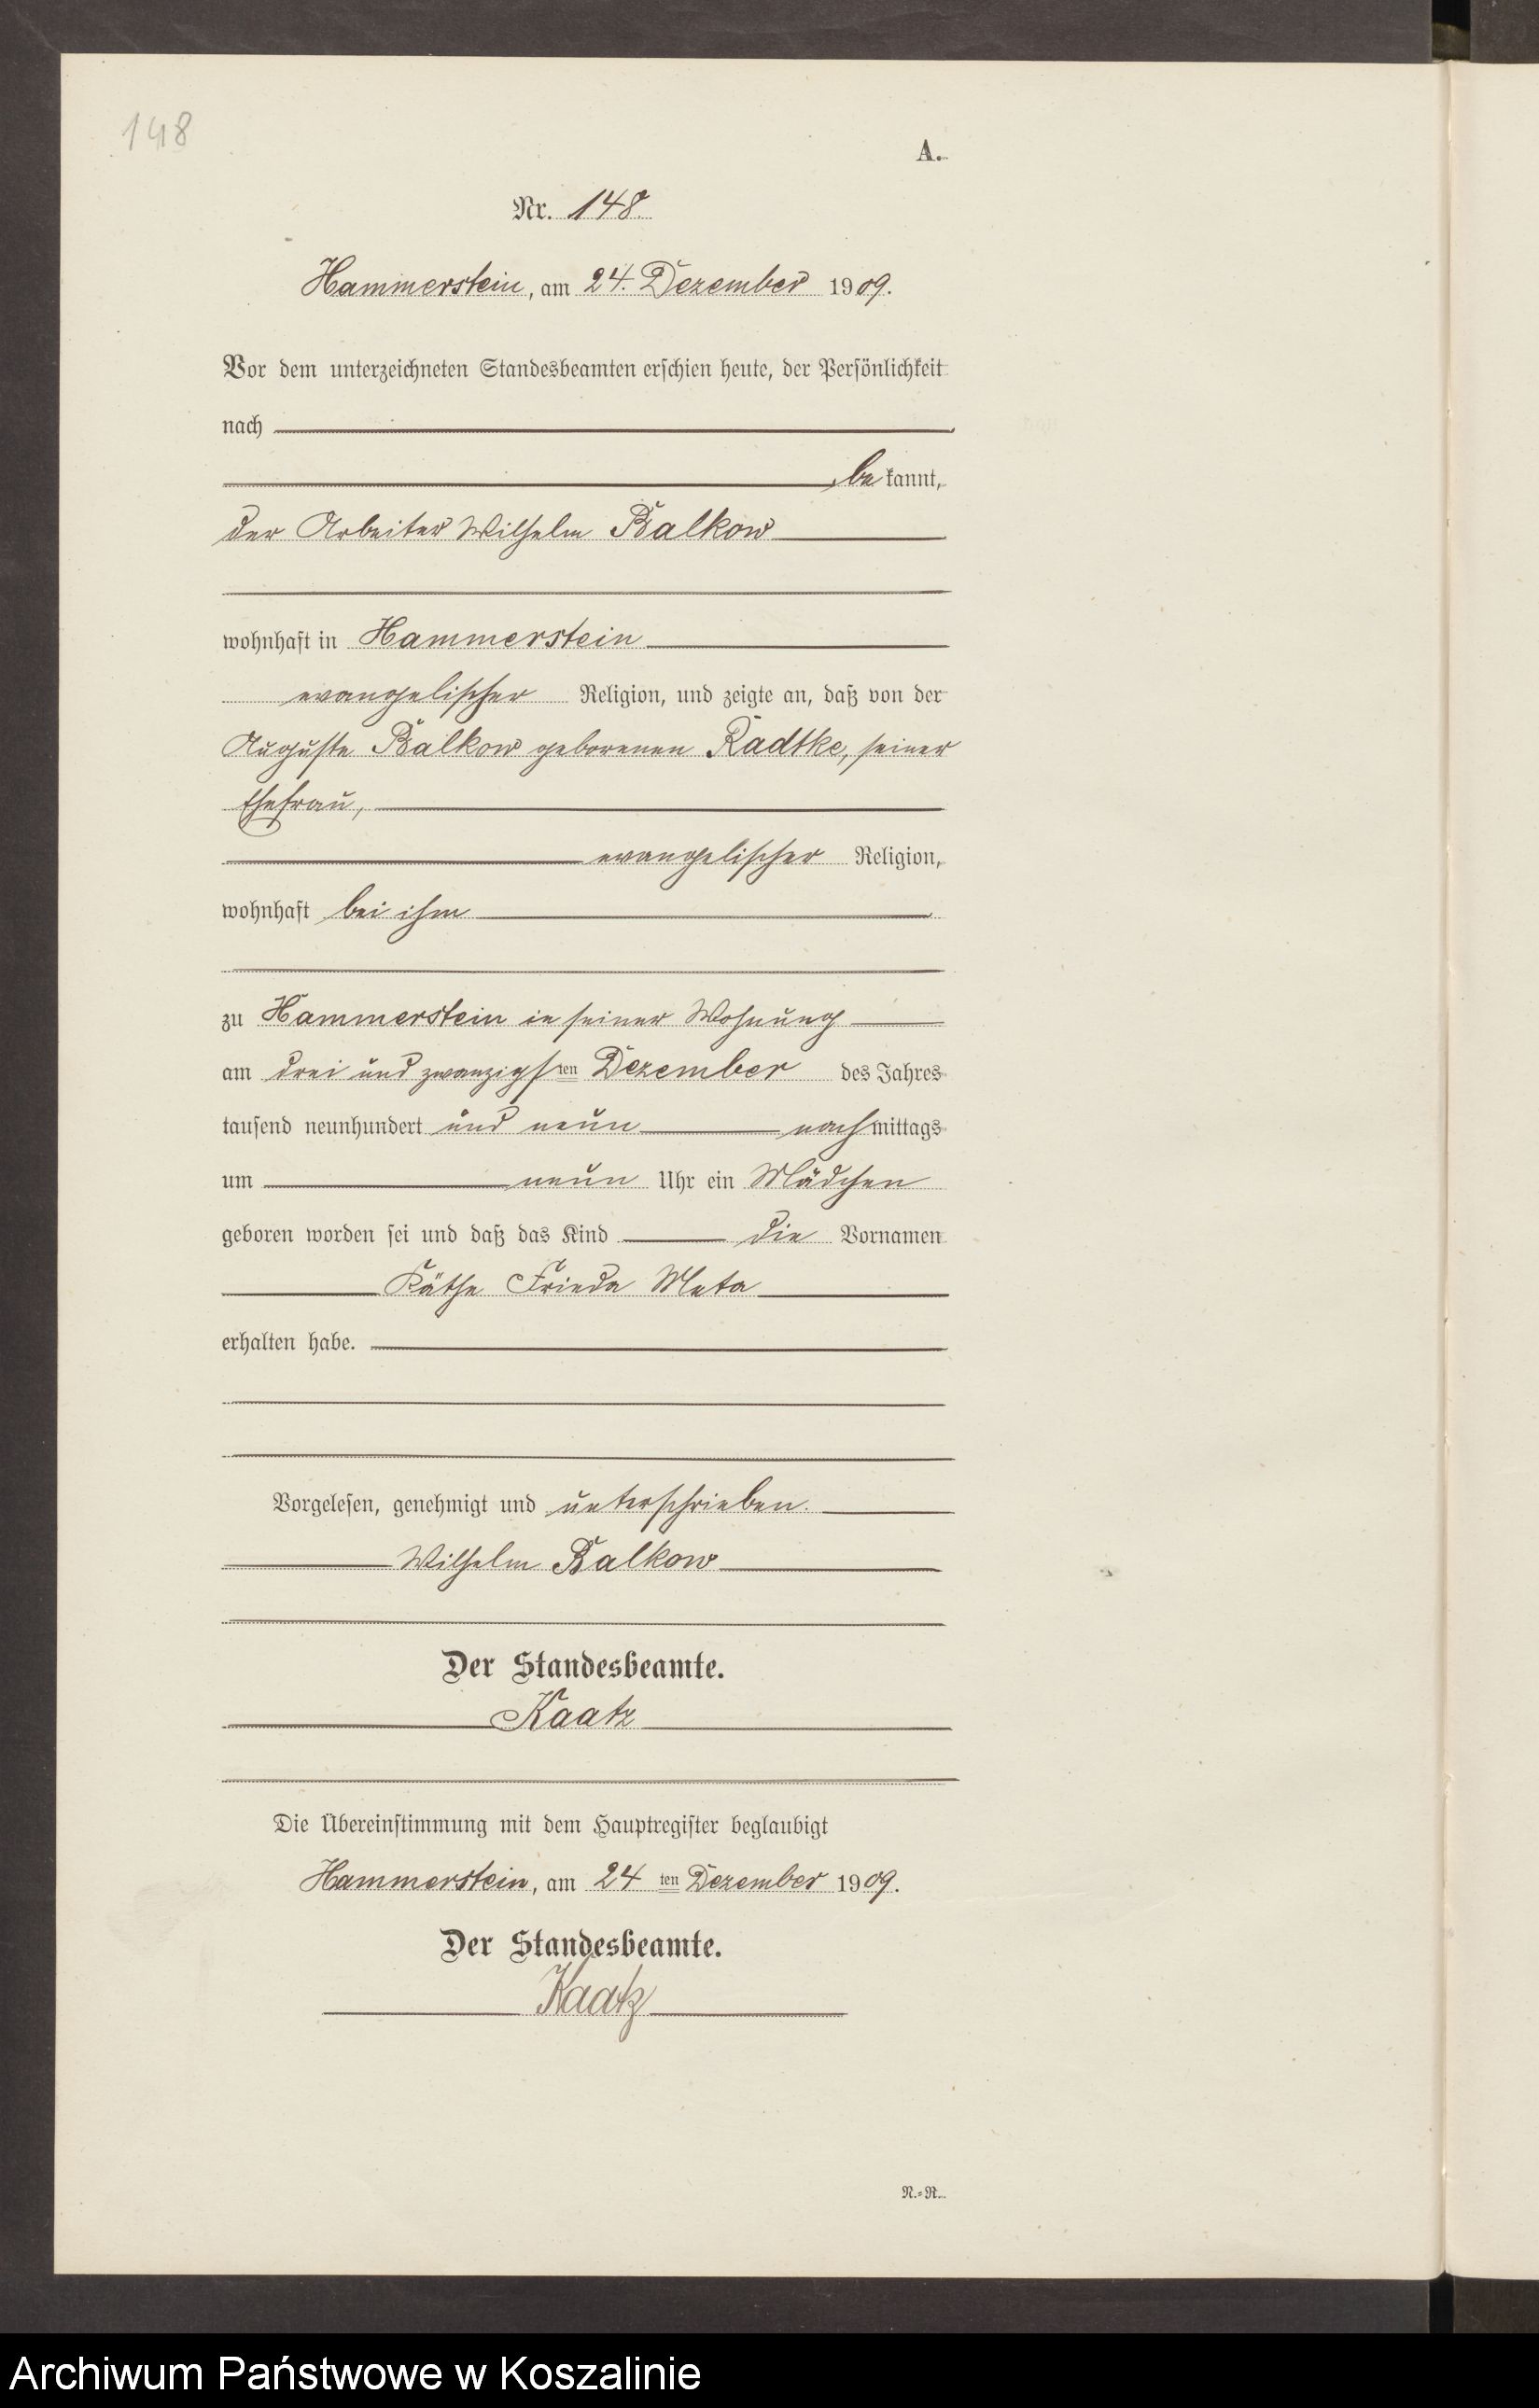 148
A.
Nr. 148.
Hammerstein, am 24. Dezember 1909.
Vor dem unterzeichneten Standesbeamten erschien heute, der Persönlichkeit
nach
bekannt,
der Arbeiter Wilhelm Balkow
wohnhaft in Hammerstein
evangelischer Religion, und zeigte an, daß von der
Auguste Balkow geborenen Radtke, seiner
Ehefrau,
evangelischer Religion,
wohnhaft bei ihm
zu Hammerstein in seiner Wohnung
am drei und zwanzigsten Dezember des Jahres
tausend neunhundert und neun nachmittags
um neun Uhr ein Mädchen
geboren worden sei und daß das Kind die Vornamen
Käthe Frieda Meta
erhalten habe.
Vorgelesen, genehmigt und unterschrieben.
Wilhelm Balkow
Der Standesbeamte.
Kaatz
Die Übereinstimmung mit dem Hauptregister beglaubigt
Hammerstein, am 24 ten Dezember 1909.
Der Standesbeamte.
Kaatz
N.-R.
Archiwum Państwowe w Koszalinie